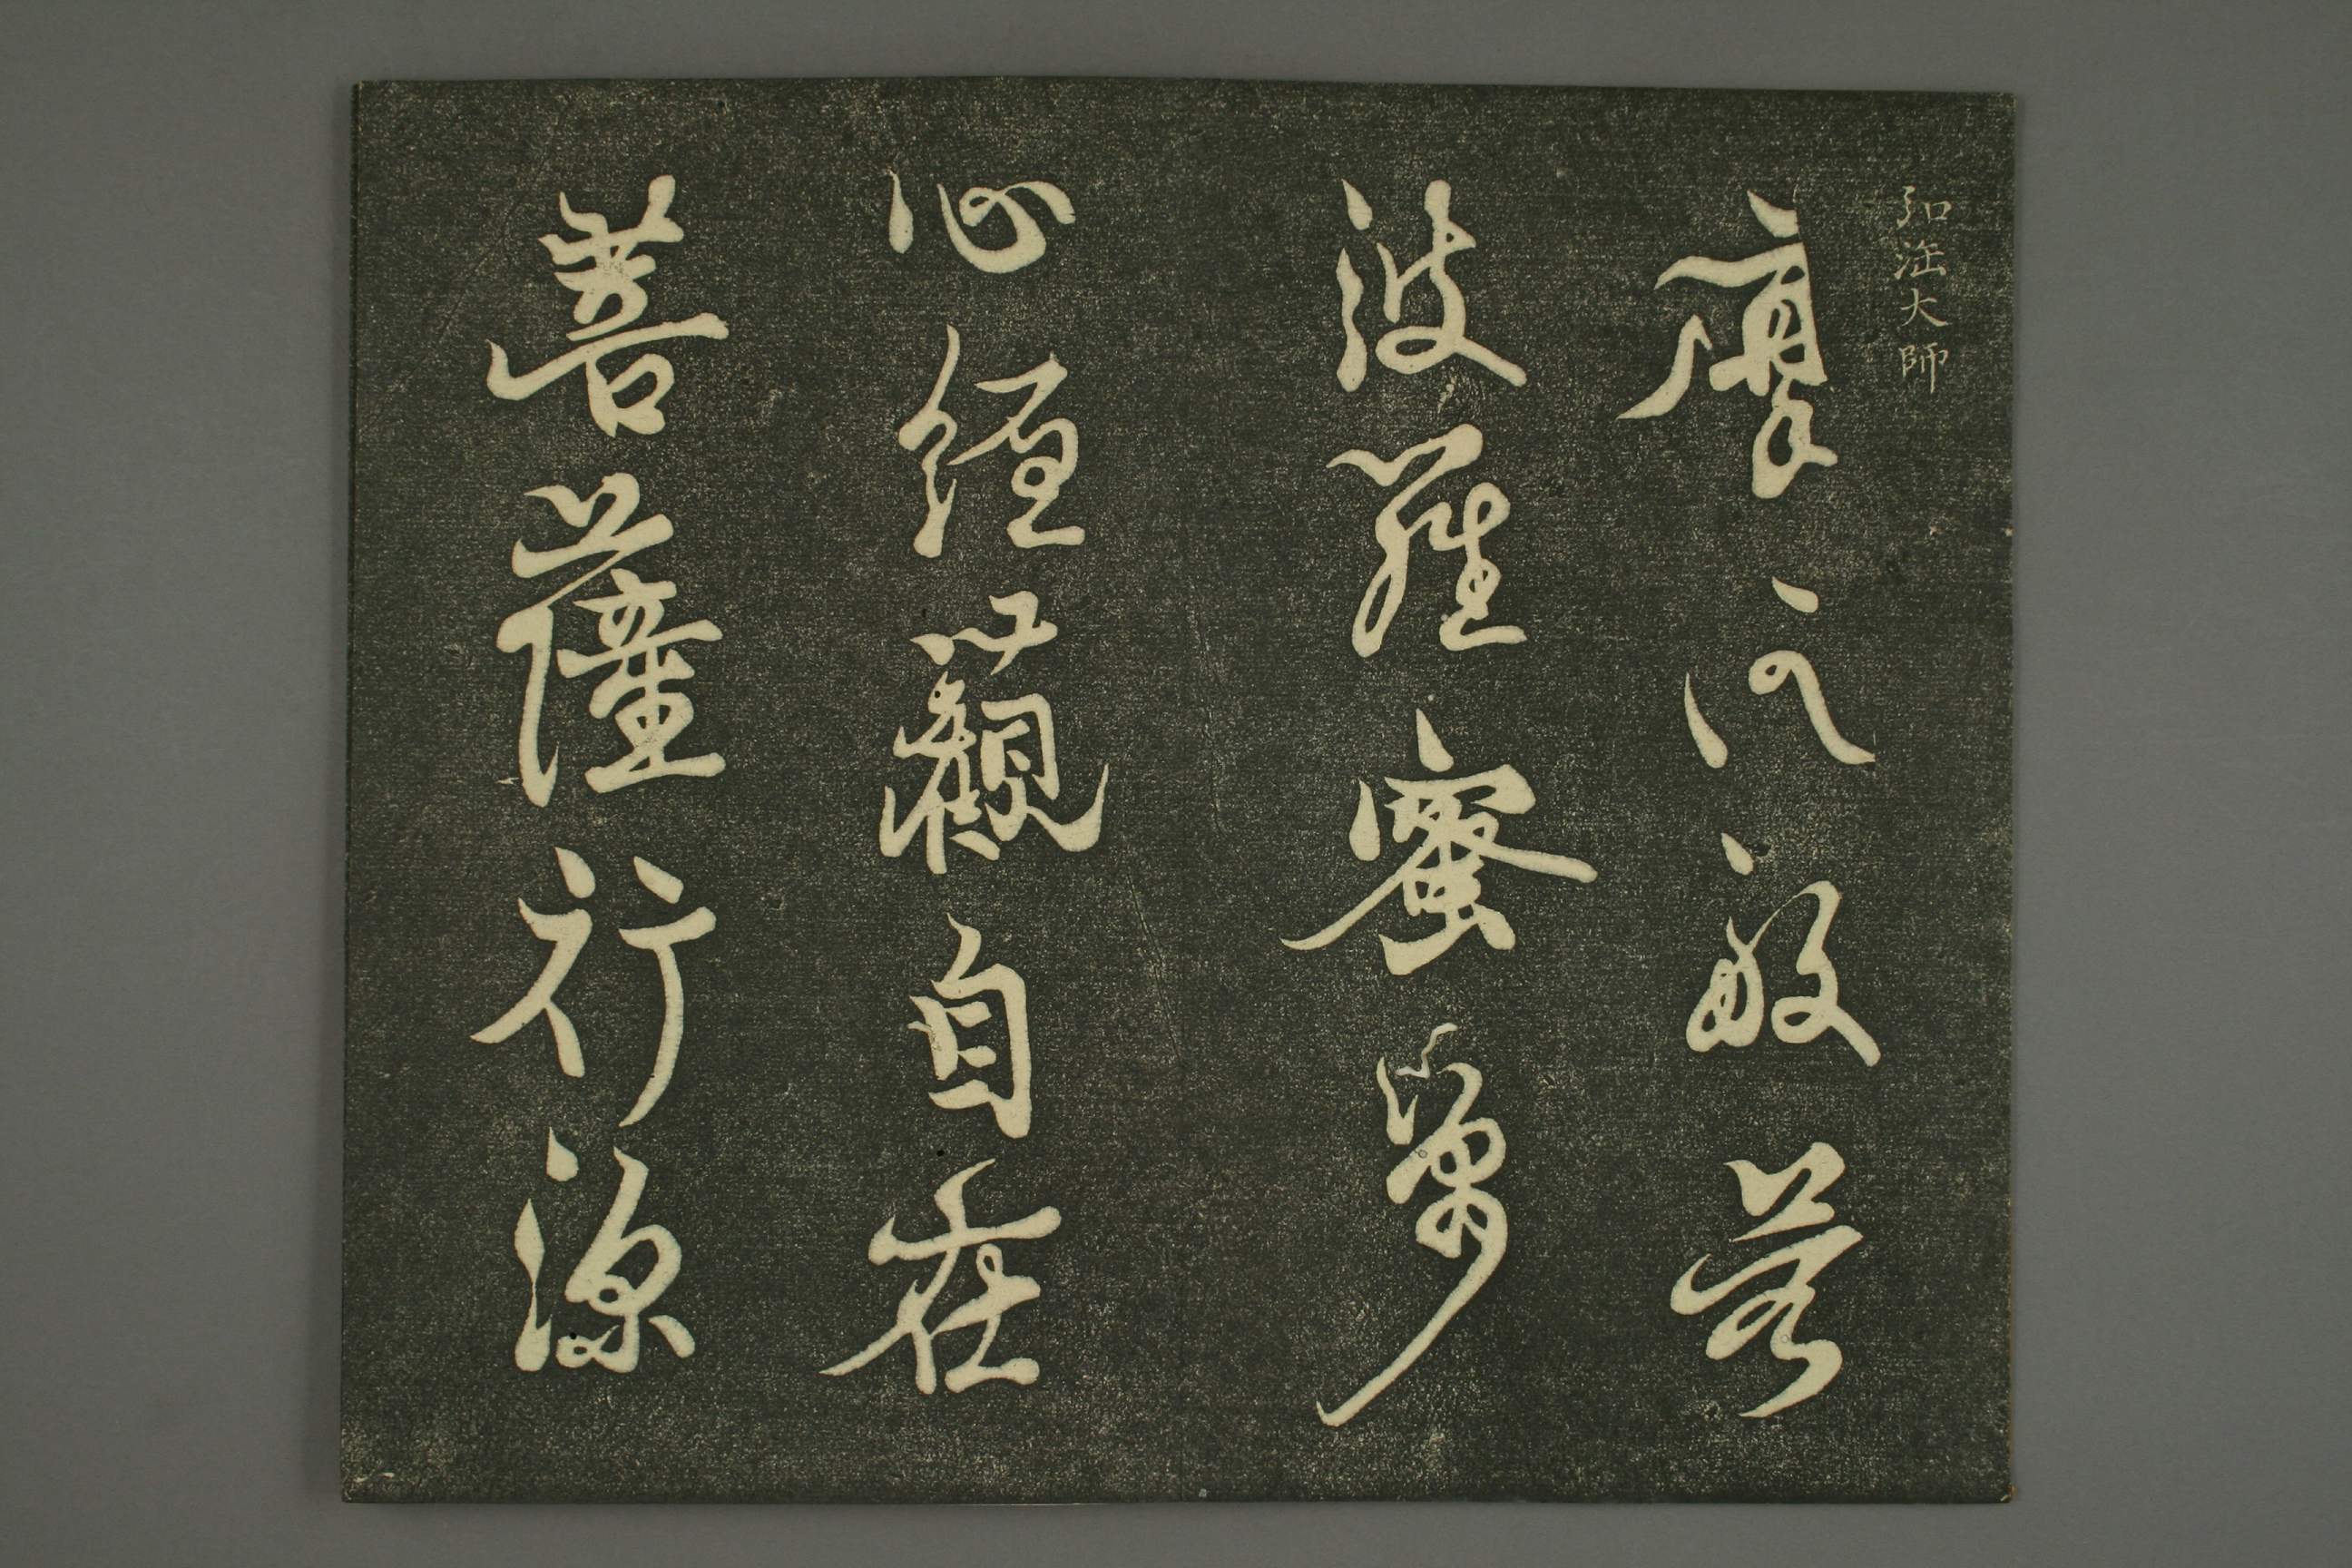 弘法大師
摩訶般若
波羅蜜多
心經觀自在
菩薩行深